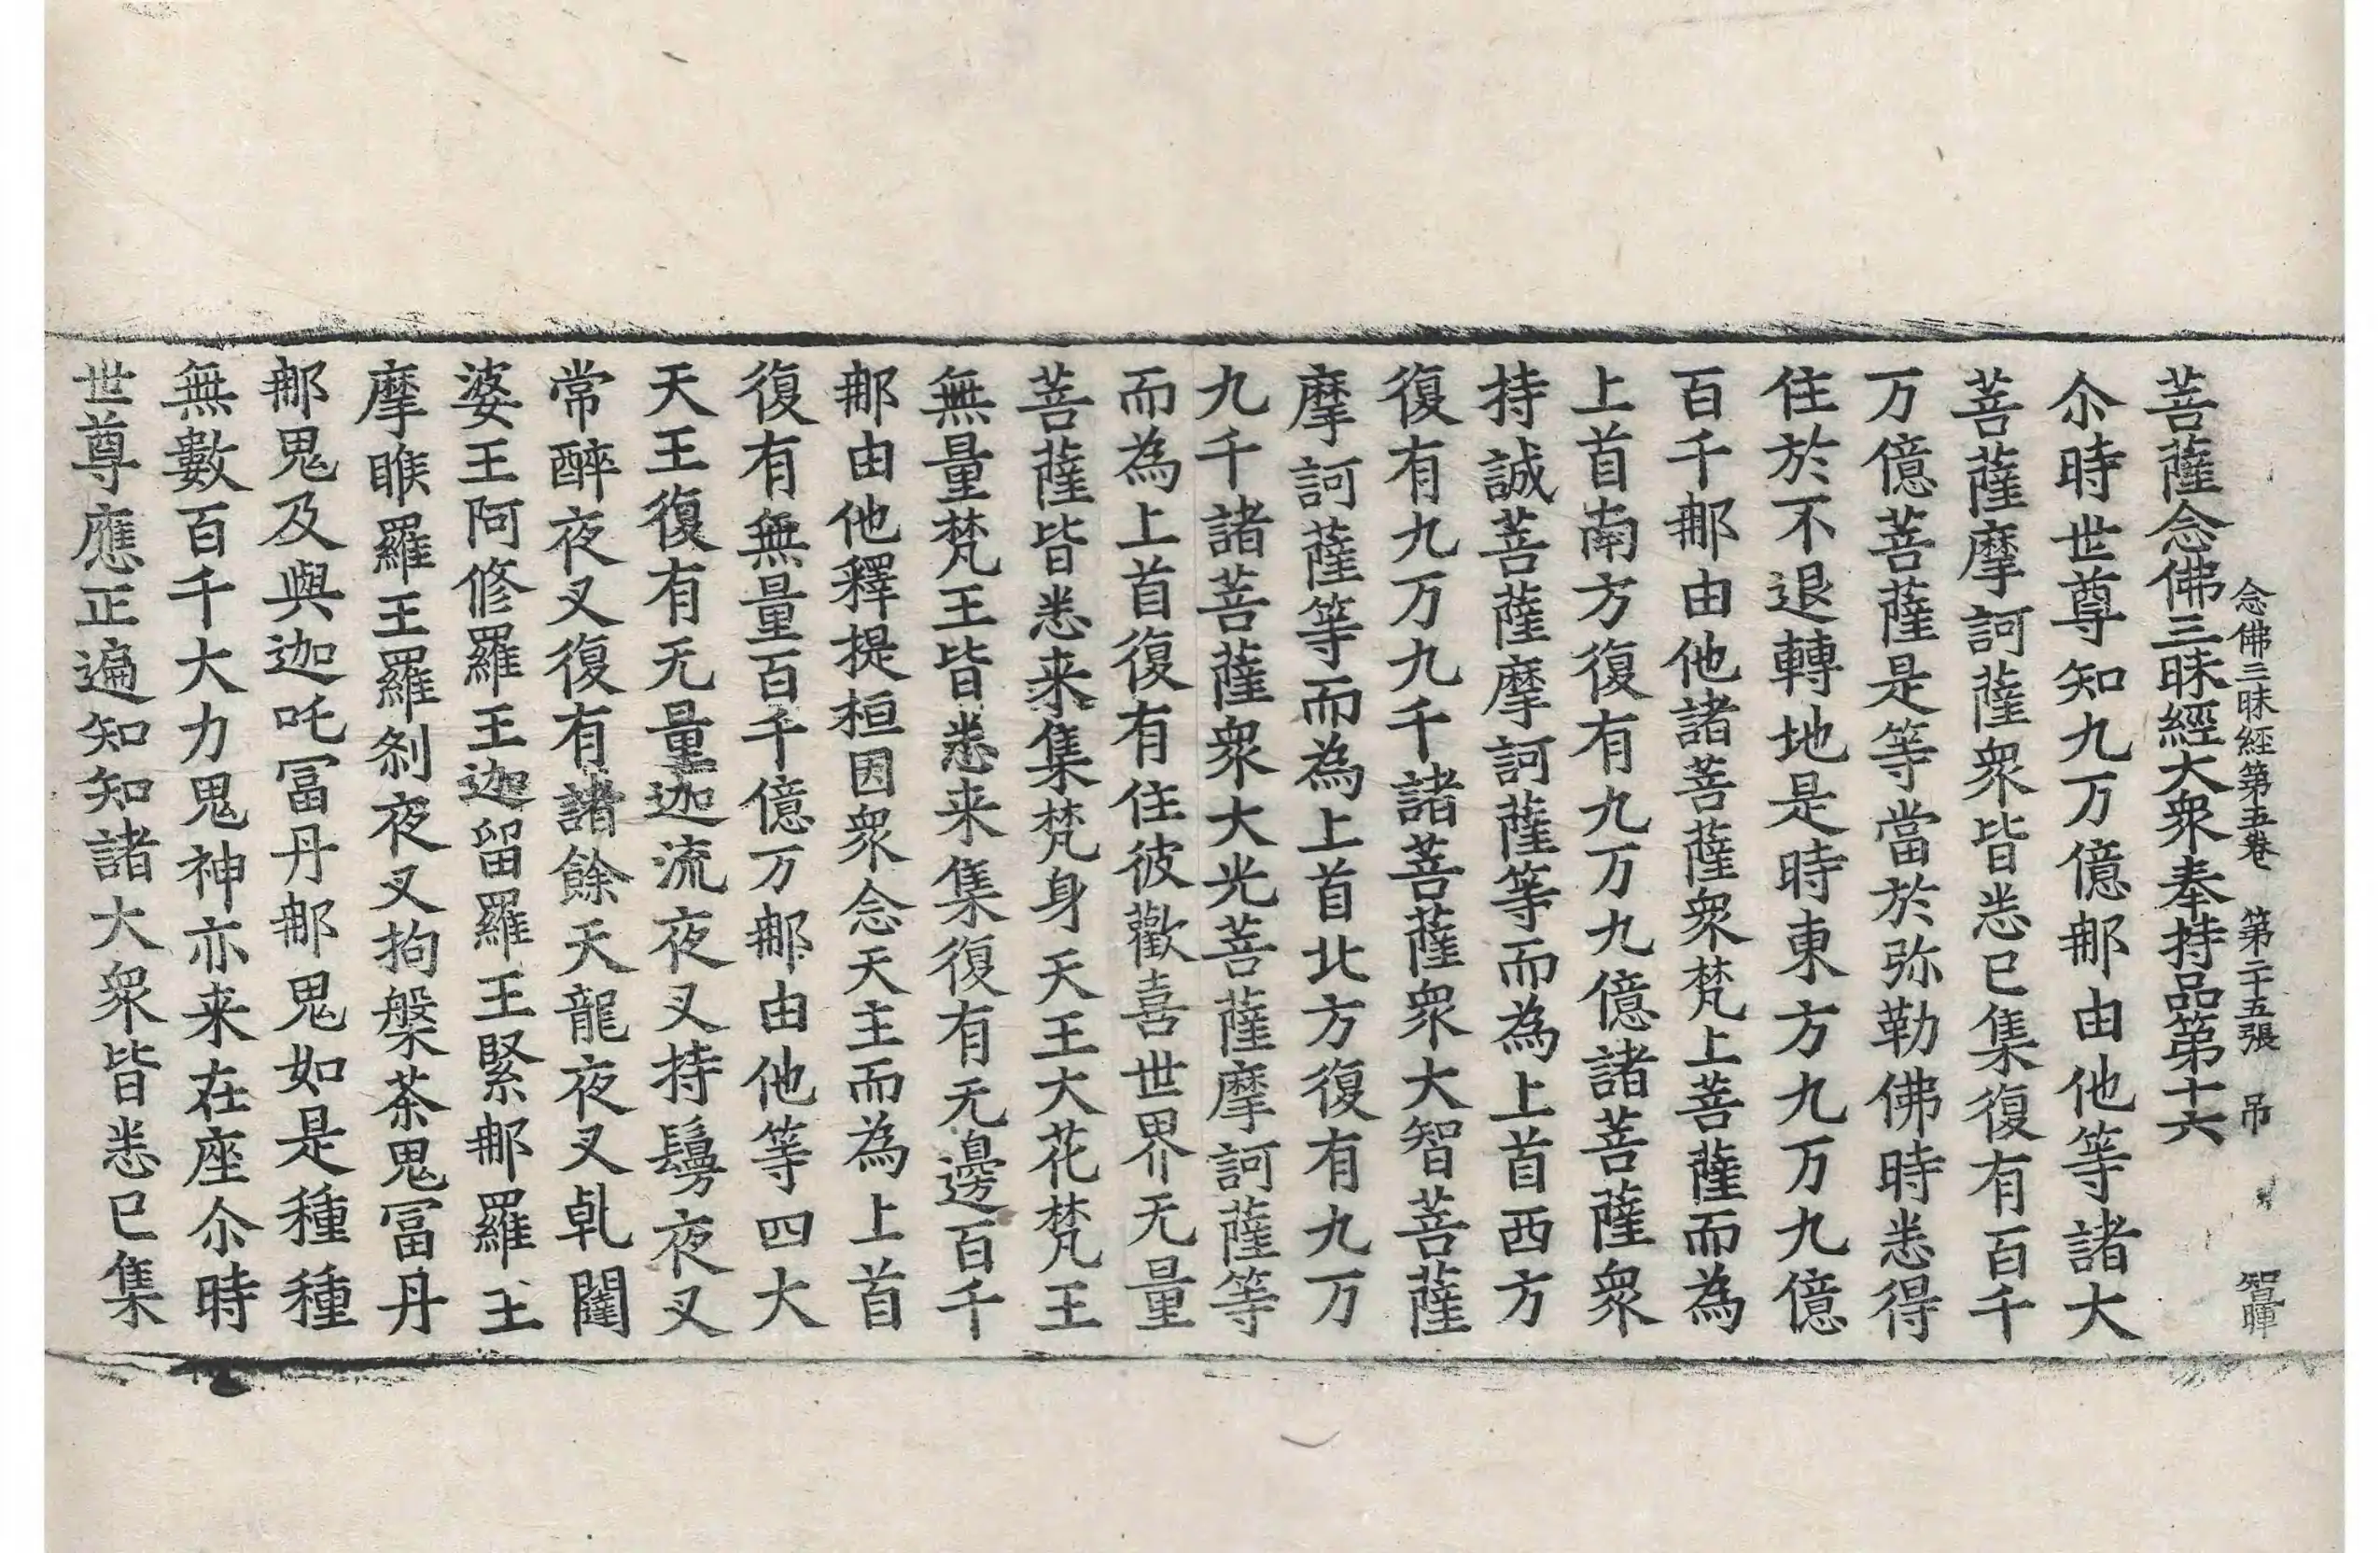 念佛三昧經第五卷　第二十五張　吊　智暉
菩薩念佛三昧經大衆奉持品第十六
尒時世尊知九万億那由他等諸大
菩薩摩訶薩衆皆悉已集復有百千
万億菩薩是等當於弥勒佛時悉得
住於不退轉地是時東方九万九億
百千那由他諸菩薩衆梵上菩薩而為
上首南方復有九万九億諸菩薩衆
持誠菩薩摩訶薩等而為上首西方
復有九万九千諸菩薩衆大智菩薩
摩訶薩等而為上首北方復有九万
九千諸菩薩衆大光菩薩摩訶薩等
而為上首復有住彼歡喜世界无量
菩薩皆悉来集梵身天王大花梵王
無量梵王皆悉来集復有无邊百千
那由他釋提桓因衆念天主而為上首
復有無量百千億万那由他等四大
天王復有无量迦流夜叉持鬘夜叉
常醉夜叉復有諸餘天龍夜叉乹闥
婆王阿修羅王迦留羅王緊那羅王
摩睺羅王羅刹夜叉拘槃荼鬼冨丹
那鬼及與迦吒冨丹那鬼如是種種
無數百千大力鬼神亦来在座尒時
世尊應正遍知知諸大衆皆悉已集